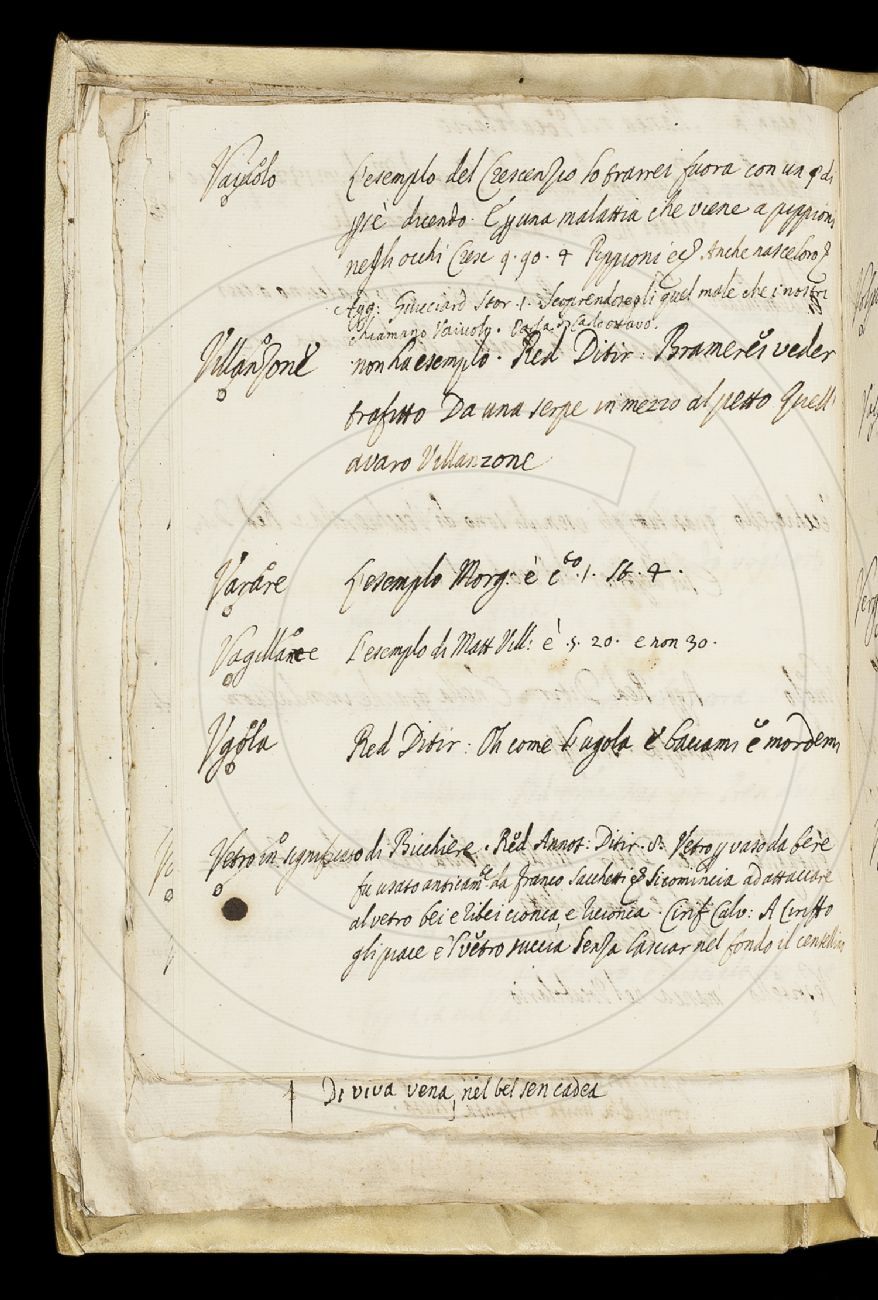 Vajuolo L'esempio del Crescenzio lo trarrei fuora con un
è dicendo. È una malattia che viene a pippioni
negli occhi Cresc 9. 90. 4 Pippioni &c. Anche nasce loro
Agg: Guicciard Stor. 1. Scoprendosegli quel male che i nostri
chiamano Vaivolo.
Villanzone non ha esempio. Red Ditir: Bramerei veder
trafitto Da una serpe in mezzo al petto Quell'
avaro Villanzone
Varare L'esempio Morg: è cto. 1. St. 4.
Vagillare L'esempio di Matt Vill: è 5. 20. e non 30.
Vgola Red Ditir: Oh come l'ugola e baciami e mordemi
Vetro in signific di Bicchiere. Red Annot: Ditir. 8. Vetro vaso da bere
fu usato anticamte da Franco Sacchetti Si comincia ad attaccare
al vetro bei e ribei cionca e ricionca. Cirif Calv: A Ciriffo
gli piace e 'l vetro succia Senza lasciar nel fondo il centellino
Di viva vena, nel bel sen cadea